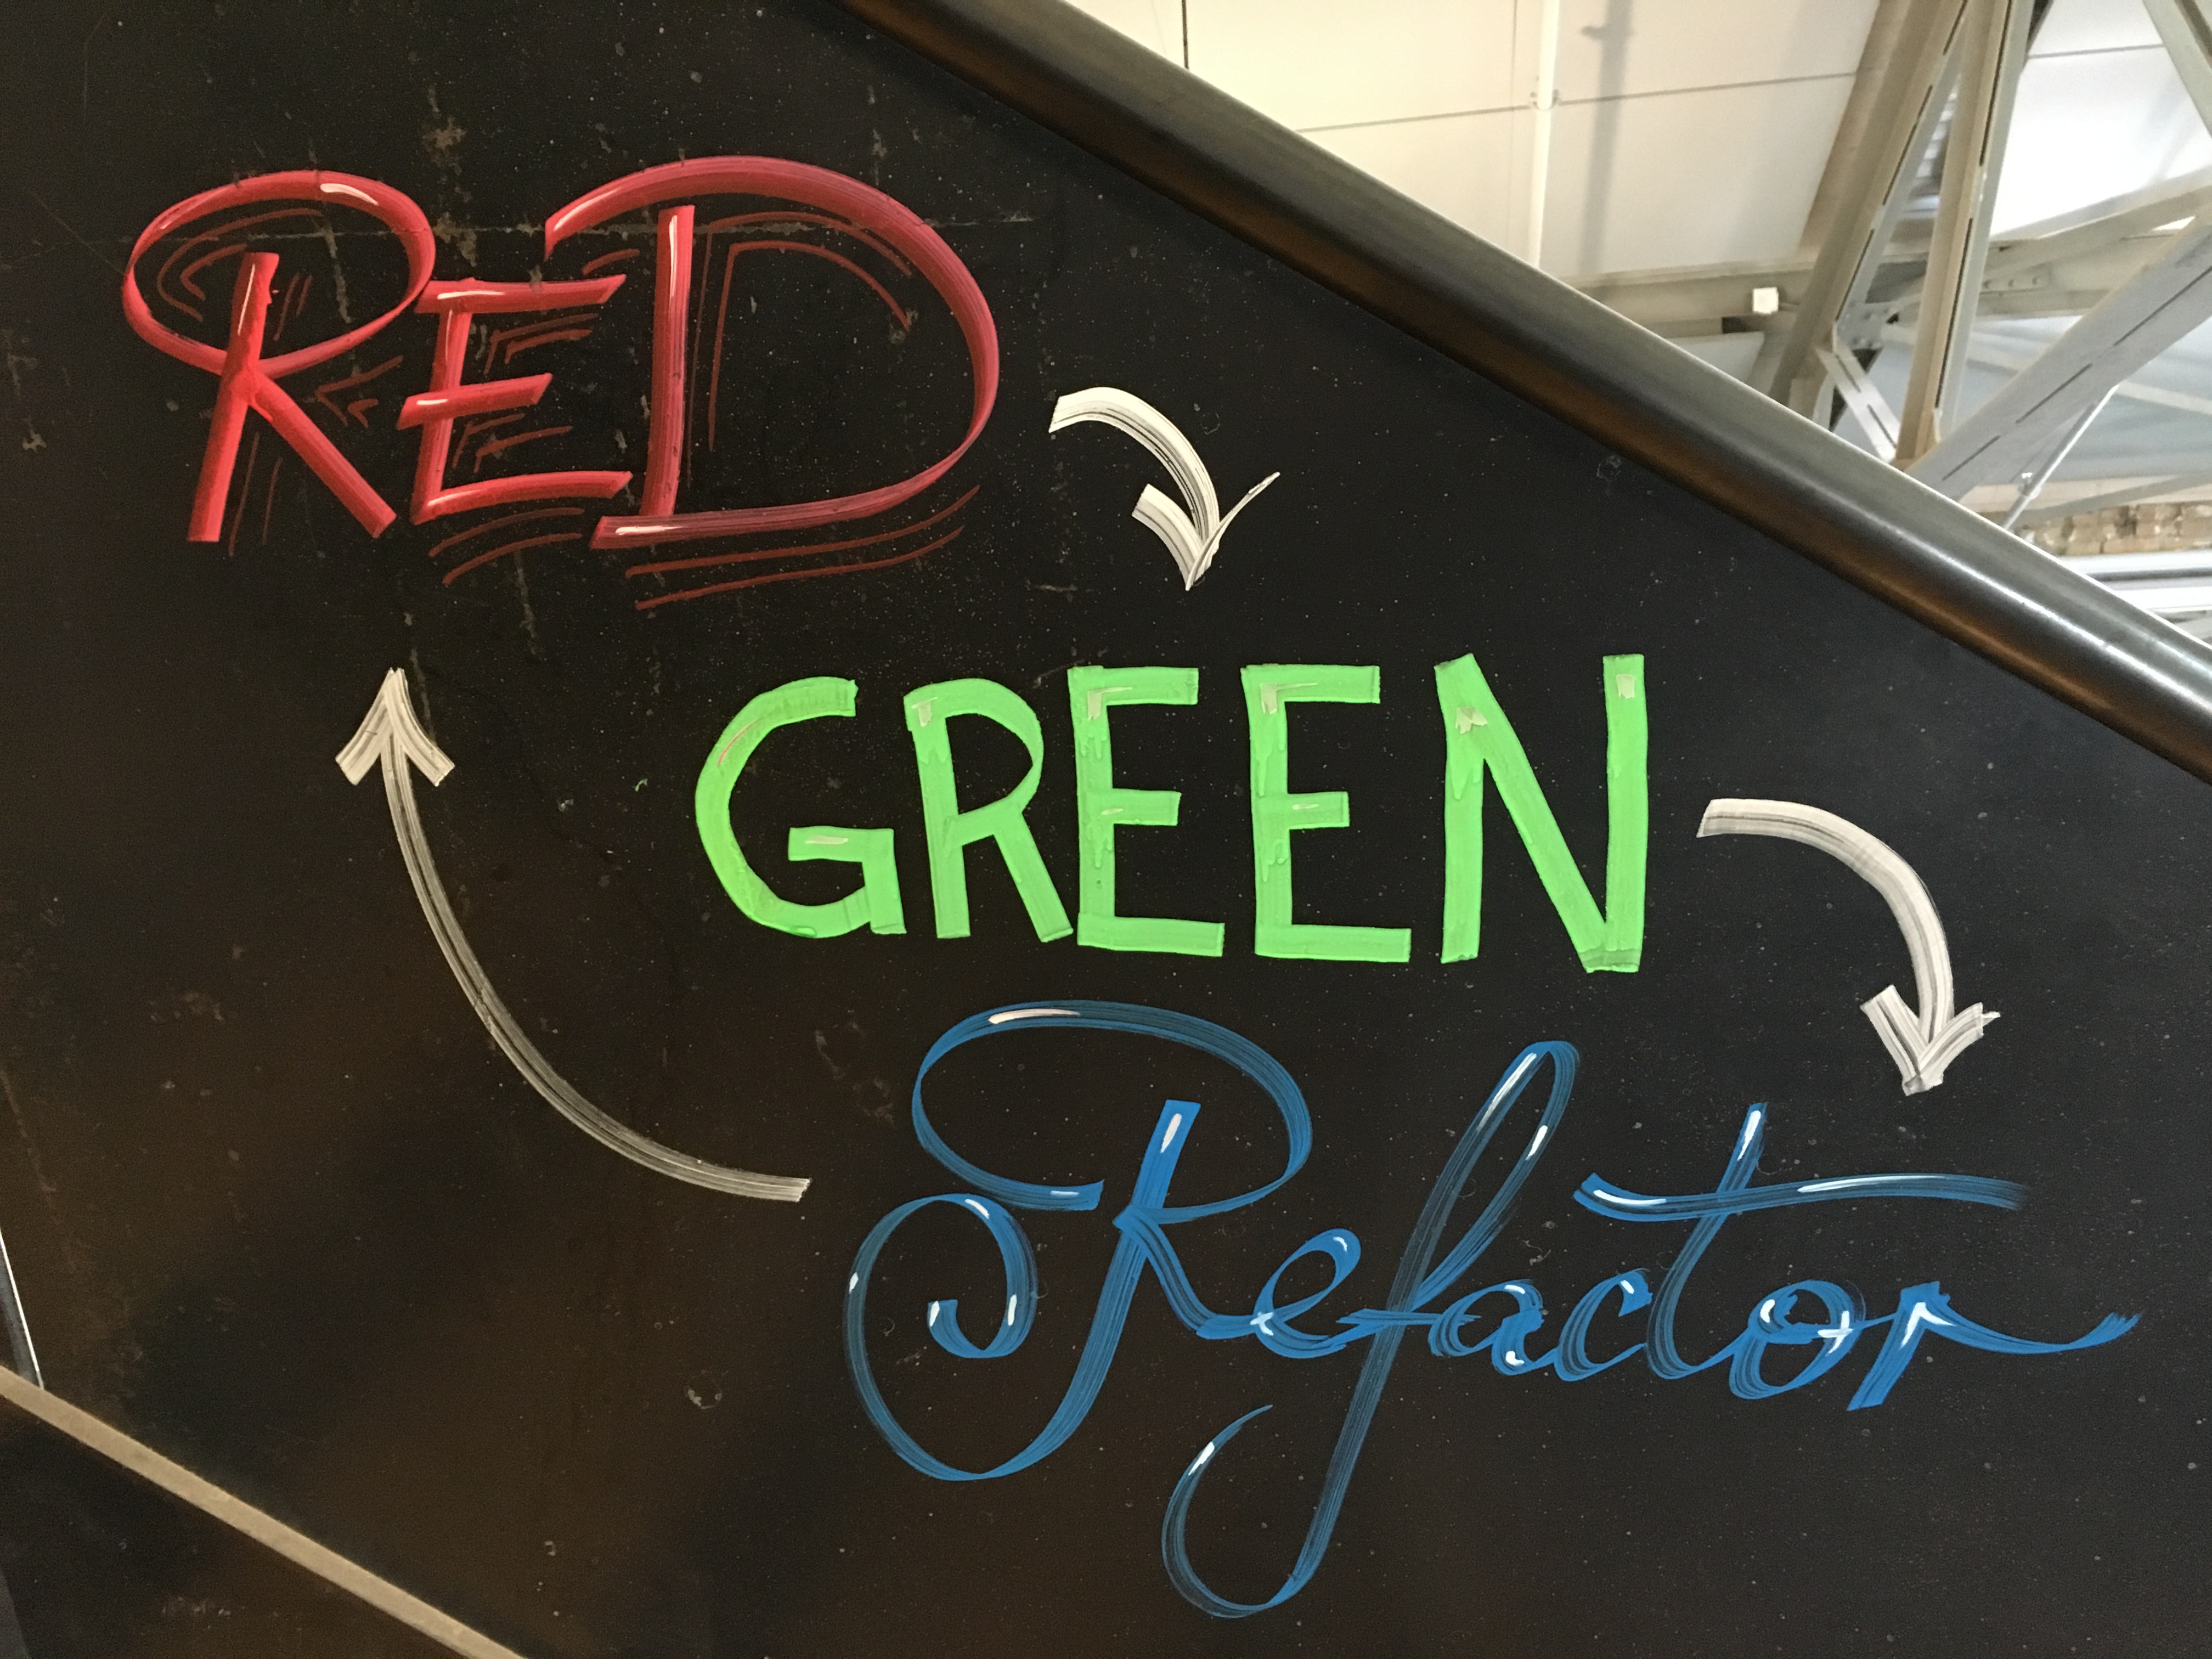 RED
GREEN
Refactor